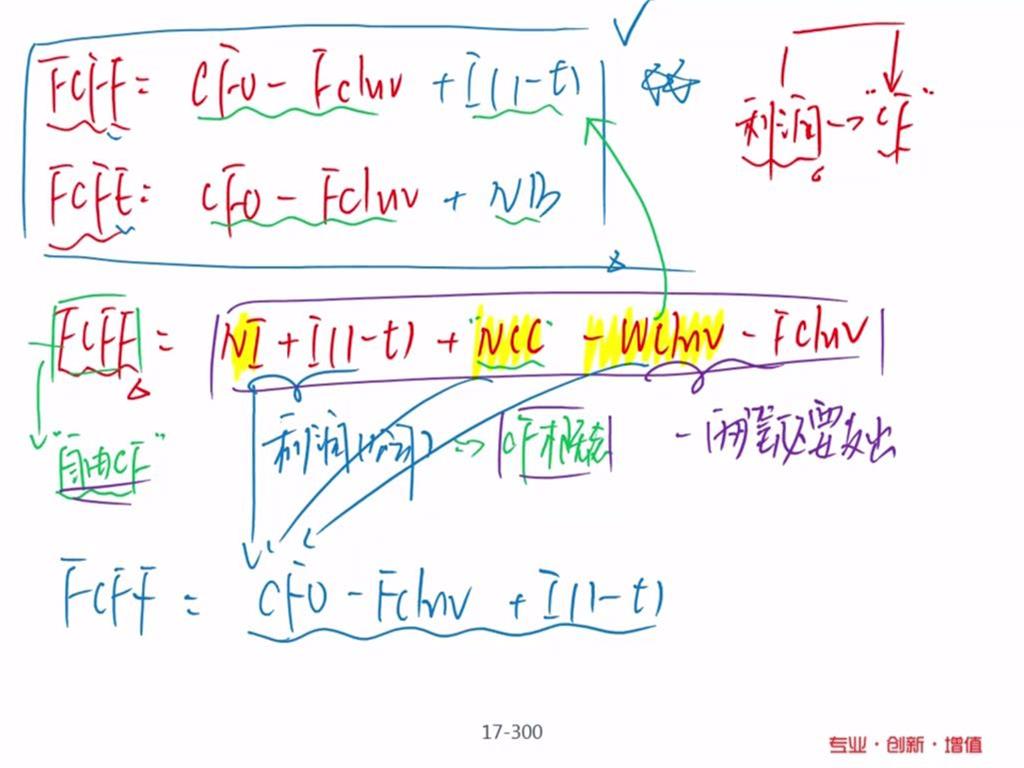 FCFF = CFO - FCInv + I(1-t)
利润 → "CF"
FCFE = CFO - FCInv + NB
FCFF = NI + I(1-t) + NCC - WCInv - FCInv
"自由CF"
利润(公司) → CF概念 - 两笔必要支出
FCFF = CFO - FCInv + I(1-t)
17-300
专业·创新·增值